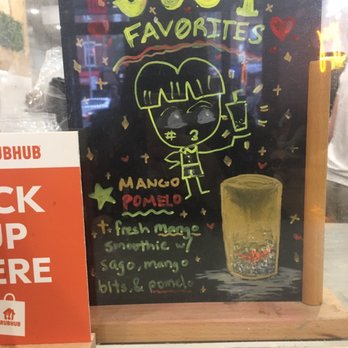 FAVORITES
# 3
MANGO
POMELO
+ fresh mango
smoothie w/
sago, mango
bits, & pomelo
RUBHUB
CK
UP
ERE
RUBHUB